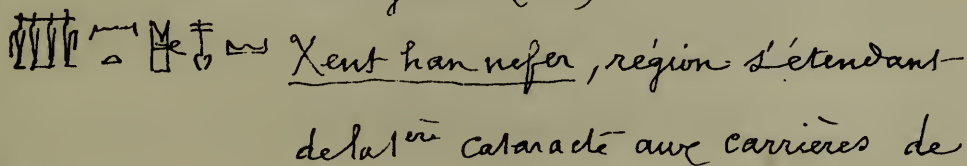 Xent han nefer, région s'étendant
de la 1ère cataracte aux carrières de